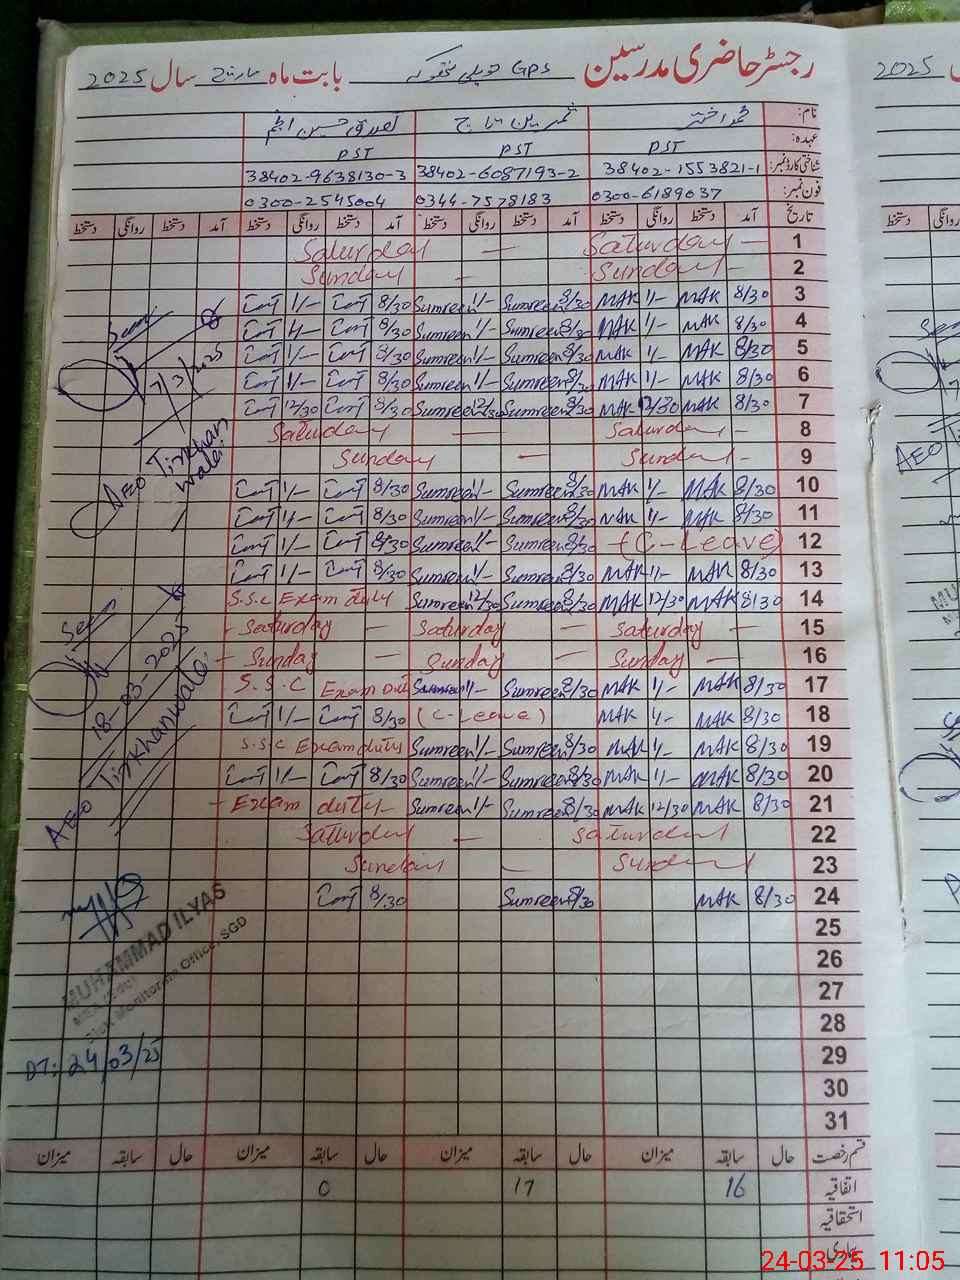 رجسٹر حاضری مدرسین GPS حویلی بابت ماہ مارچ سال 2025
نام:
عہدہ: PST PST PST
شناختی کارڈ نمبر: 38402-1553821-1 38402-6087193-2 38402-9638130-3
فون نمبر: 0300-6189037 0344-7578183 0300-2545004
تاریخ آمد دستخط روانگی دستخط آمد دستخط روانگی دستخط آمد دستخط روانگی دستخط آمد دستخط روانگی دستخط
Saturday — Saturday — 1
Sunday - Sunday - 2
1/- 8/30 Sumreen 1/- Sumreen 8/30 MAK 1/- MAK 8/30 3
8/30 Sumreen 1/- Sumreen 8/30 MAK 1/- MAK 8/30 4
1/- 8/30 Sumreen 1/- Sumreen 8/30 MAK 1/- MAK 8/30 5
1/- 8/30 Sumreen 1/- Sumreen 8/30 MAK 1/- MAK 8/30 6
12/30 8/30 Sumreen 12/30 Sumreen 8/30 MAK 12/30 MAK 8/30 7
Saturday — Saturday - 8
Sunday — Sunday - 9
1/- 8/30 Sumreen 1/- Sumreen 8/30 MAK 1/- MAK 8/30 10
8/30 Sumreen 1/- Sumreen 8/30 MAK 1/- MAK 8/30 11
1/- 8/30 Sumreen 1/- Sumreen 8/30 (C-Leave) 12
1/- 8/30 Sumreen 1/- Sumreen 8/30 MAK 1/- MAK 8/30 13
S.S.C Exam duty Sumreen 12/30 Sumreen 8/30 MAK 12/30 MAK 8/30 14
- Saturday — Saturday — Saturday — 15
- Sunday — Sunday — Sunday — 16
S.S.C Exam Duty Sumreen 1/- Sumreen 8/30 MAK 1/- MAK 8/30 17
1/- 8/30 (C-Leave) MAK 1/- MAK 8/30 18
S.S.C Exam duty Sumreen 1/- Sumreen 8/30 MAK 1/- MAK 8/30 19
1/- 8/30 Sumreen 1/- Sumreen 8/30 MAK 1/- MAK 8/30 20
- Exam duty - Sumreen 1/- Sumreen 8/30 MAK 12/30 MAK 8/30 21
Saturday — Saturday 22
Sunday — Sunday 23
8/30 Sumreen 8/30 MAK 8/30 24
25
26
27
28
29
30
31
Seen
7/3/2025
AEO Tirkhan
Wala
Seen
18-03-2025
AEO Tirkhanwala
MUHAMMAD ILYAS
Monitoring Officer, SGD
DT: 24/03/25
قسم رخصت حال سابقہ میزان حال سابقہ میزان حال سابقہ میزان حال سابقہ میزان
اتفاقیہ 16 17 0
استحقاقیہ
2025
24-03-25 11:05